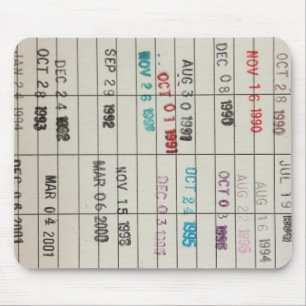 OCT 28 1990
NOV 16 1990
DEC 08 1990
AUG 30
OCT 01 1991
NOV 26
SEP 29 1992
DEC 24 1992
OCT 28 1993
JAN 24 1994
JUL 19
AUG 16 1994
AUG 22 1995
OCT 03
OCT 24 1995
DEC 03
NOV 15 1998
MAR 06 2000
MAR 04 2001
DEC 06 2001